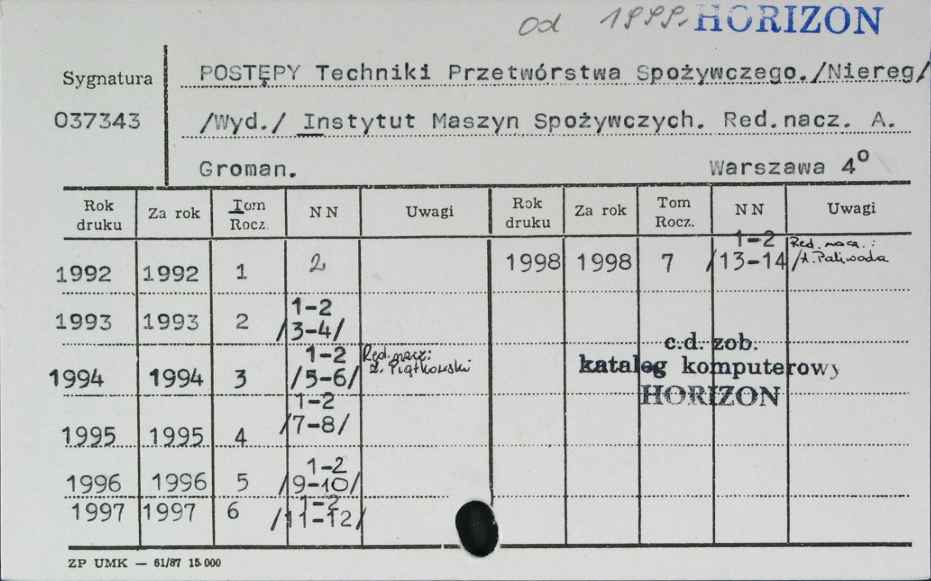 od 1999. HORIZON
Sygnatura POSTĘPY Techniki Przetwórstwa Spożywczego./Niereg/
037343 /Wyd./ Instytut Maszyn Spożywczych. Red.nacz. A.
Groman. Warszawa 4°
Rok druku Za rok Tom Rocz. NN Uwagi Rok druku Za rok Tom Rocz. NN Uwagi
1992 1992 1 2 1998 1998 7 1-2 /13-14/ Red. nacz.: A. Paliwoda
1993 1993 2 1-2 /3-4/
c.d. zob.
1994 1994 3 1-2 /5-6/ Red. nacz: Z. Piątkowski katalog komputerowy
HORIZON
1995 1995 4 1-2 /7-8/
1996 1996 5 1-2 /9-10/
1997 1997 6 1-2 /11-12/
ZP UMK — 61/87 15.000